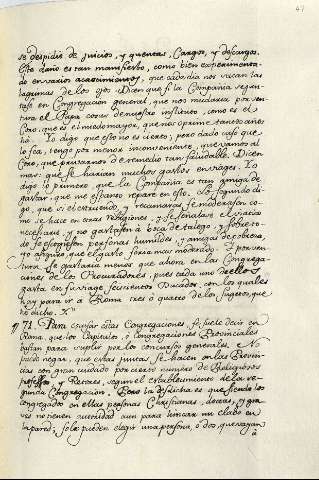 47
se despidiò de juicios, y quentas, Cargos, y descargos.
Este daño es tan manifiesto, como bien experimenta-
do en varios acaecimientos, que cada dia nos sacan las
lagrimas de los ojos. Dicen que si la Compañia se jun-
tase en Congregacion general, que nos mudaria por ven-
tura el Papa cosas de nuestro instituto, como es el
Coro, que es el miedo mayor, que nos oprime tantos años
ha. Yo digo que esto no es cierto; pero dado caso que
lo sea, tengo por menor inconveniente, que vamos al
Coro, que privarnos de remedio tan saludable. Dicen
mas: que se harian muchos gastos en viages. Yo
digo lo primero, que la Compañia es tan amiga de
gastar, que me espanto repare en eso. Lo segundo di-
go, que si es cercenado, y tercenaras se moderasen co-
mo se hace en otras religiones, y se señalase el viatico
necesario, y no gastasen à boca de talego, y sobre to-
do se escogiesen personas humildes, y amigas de pobreza
yo aseguro, que el gasto sería mas moderado. Y por ven-
tura se gastaria menos que ahora, en las Congrega-
ciones de los Procuradores, pues cada uno de ellos
gasta en su viage seiscientos Ducados, con los quales
hay para ir à Roma tres ò quatro de los sugetos, que
he dicho.
71. Para escusar estas Congregaciones se suele decir en
Roma, que los Capitulos, ò Congregaciones Provinciales
bastan para excusar los concursos generales. No
puedo negar, que estas juntas se hacen en las Provin-
cias con gran cuidado por cierto numero de Religiosos
profesos, y Rectores, segun el establecimiento de la se-
gunda Congregacion. Pero la desdicha es, que siendo los
congregados en ellas personas Christianas, doctas, y gra-
ves no tienen autoridad aun para hincar un clavo en
la pared; solo pueden elegir una persona, ò dos, que vayan
à